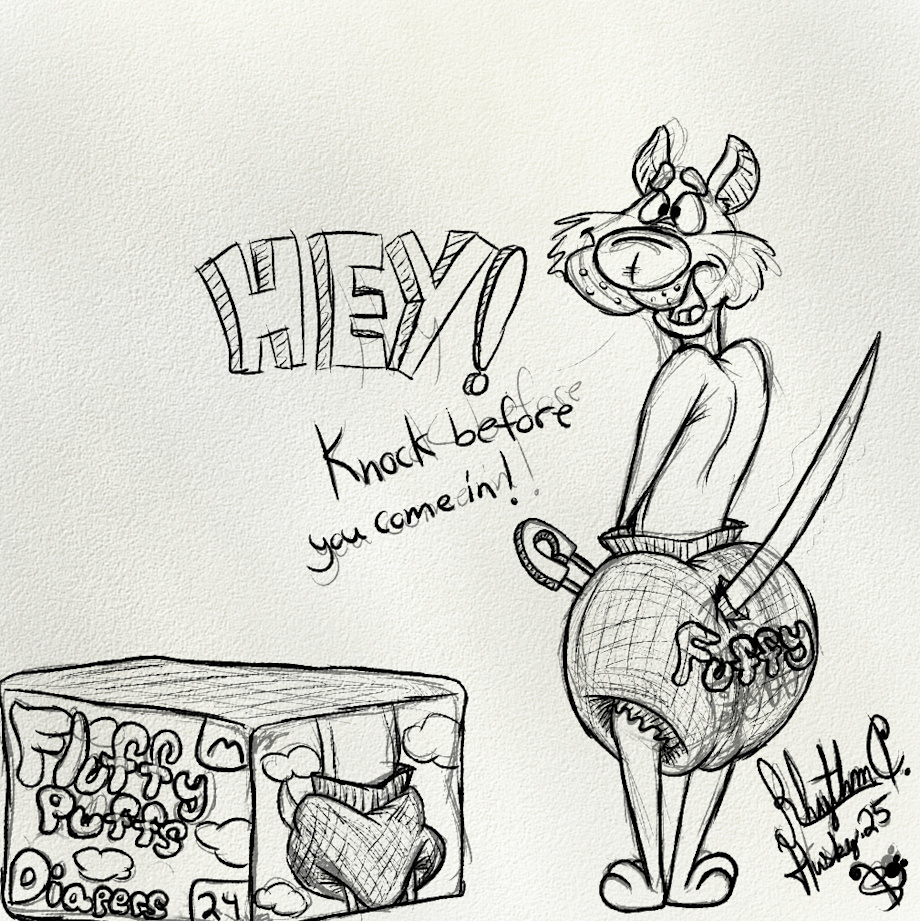 HEY!
Knock before
you come in!
Fluffy
Fluffy
Puffs
M
Diapers
24
Rhythm C.
Husky.25